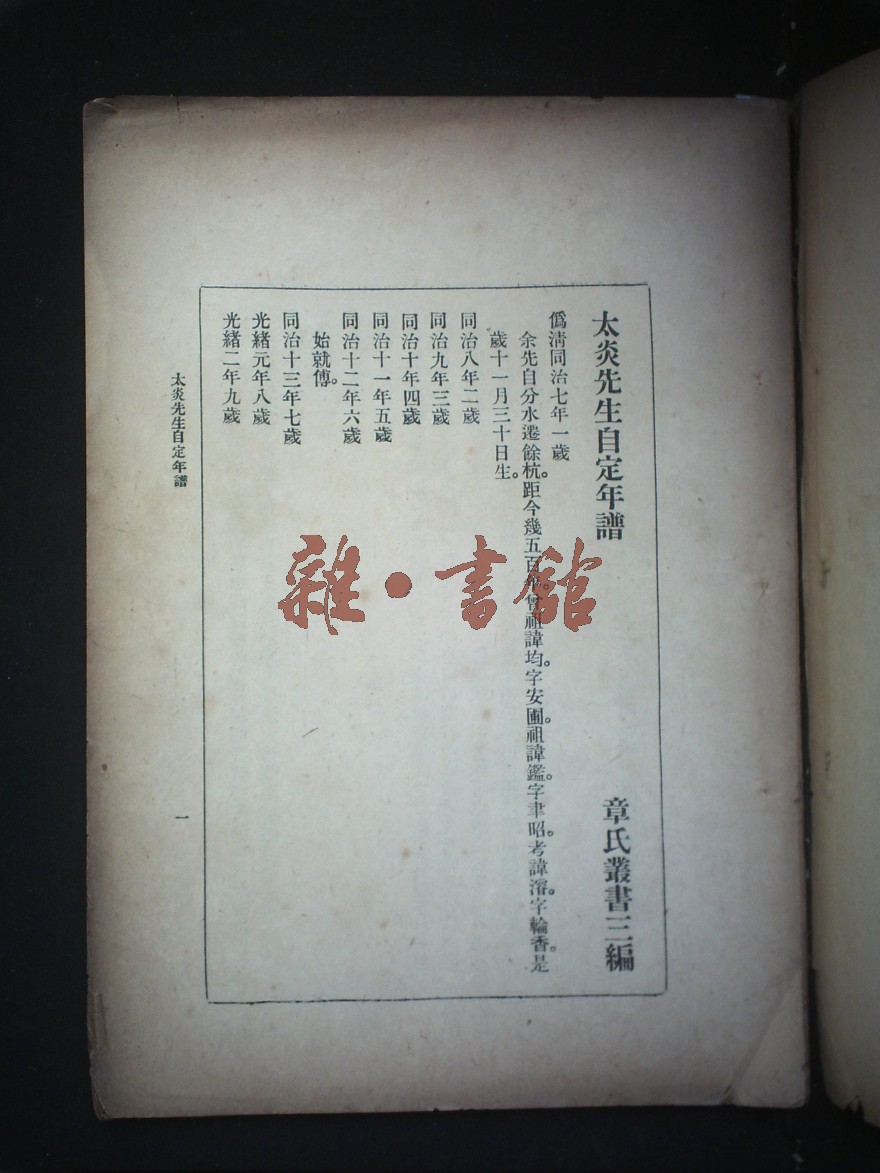 太炎先生自定年譜 章氏叢書三編
僞清同治七年一歲
余先自分水遷餘杭。距今幾五百年。曾祖諱均。字安圃。祖諱鑑。字聿昭。考諱濬。字輪香。是
歲十一月三十日生。
同治八年二歲
同治九年三歲
同治十年四歲
同治十一年五歲
同治十二年六歲
始就傅。
同治十三年七歲
光緒元年八歲
光緒二年九歲
太炎先生自定年譜 一
雜·書館